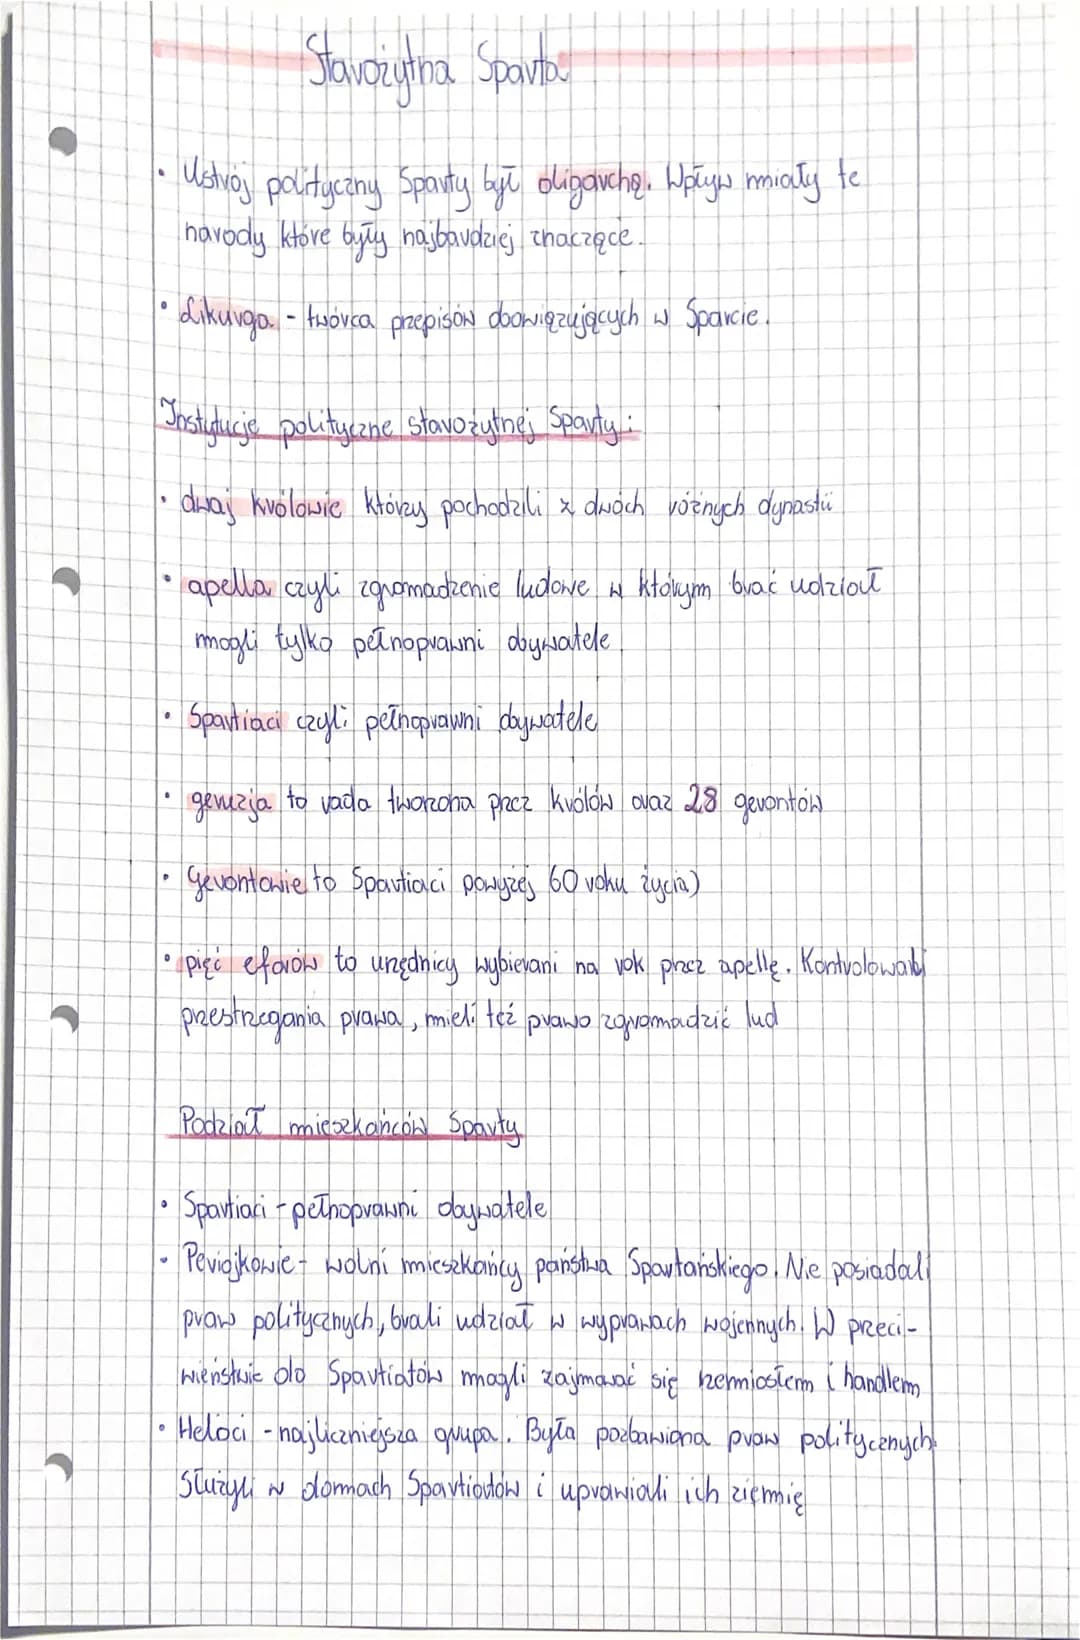 Starożytna Sparta
• Ustrój polityczny Sparty był oligarchę. Wpływ miały te
narody które były najbardziej znaczące.
• Likurga - twórca przepisów obowiązujących w Sparcie.
Instytucje polityczne starożytnej Sparty:
• dwaj królowie którzy pochodzili z dwóch różnych dynastii
• apella czyli zgromadzenie ludowe w którym brać udział
mogli tylko pełnoprawni obywatele
• Spartiaci czyli pełnoprawni obywatele
• geruzja to rada tworzona przez królów oraz 28 gerontów
• Gerontowie to Spartiaci powyżej 60 roku życia)
• pięć eforów to urzędnicy wybierani na rok przez apellę. Kontrolowali
przestrzegania prawa, mieli też prawo zgromadzić lud
Podział mieszkańców Sparty
• Spartiaci - pełnoprawni obywatele
• Periojkowie - wolni mieszkańcy państwa Spartańskiego. Nie posiadali
praw politycznych, brali udział w wyprawach wojennych. W przeci-
wieństwie do Spartiatów mogli zajmować się rzemiosłem i handlem
• Heloci - najliczniejsza grupa. Była pozbawiona praw politycznych.
Służyli w domach Spartiatów i uprawiali ich ziemię